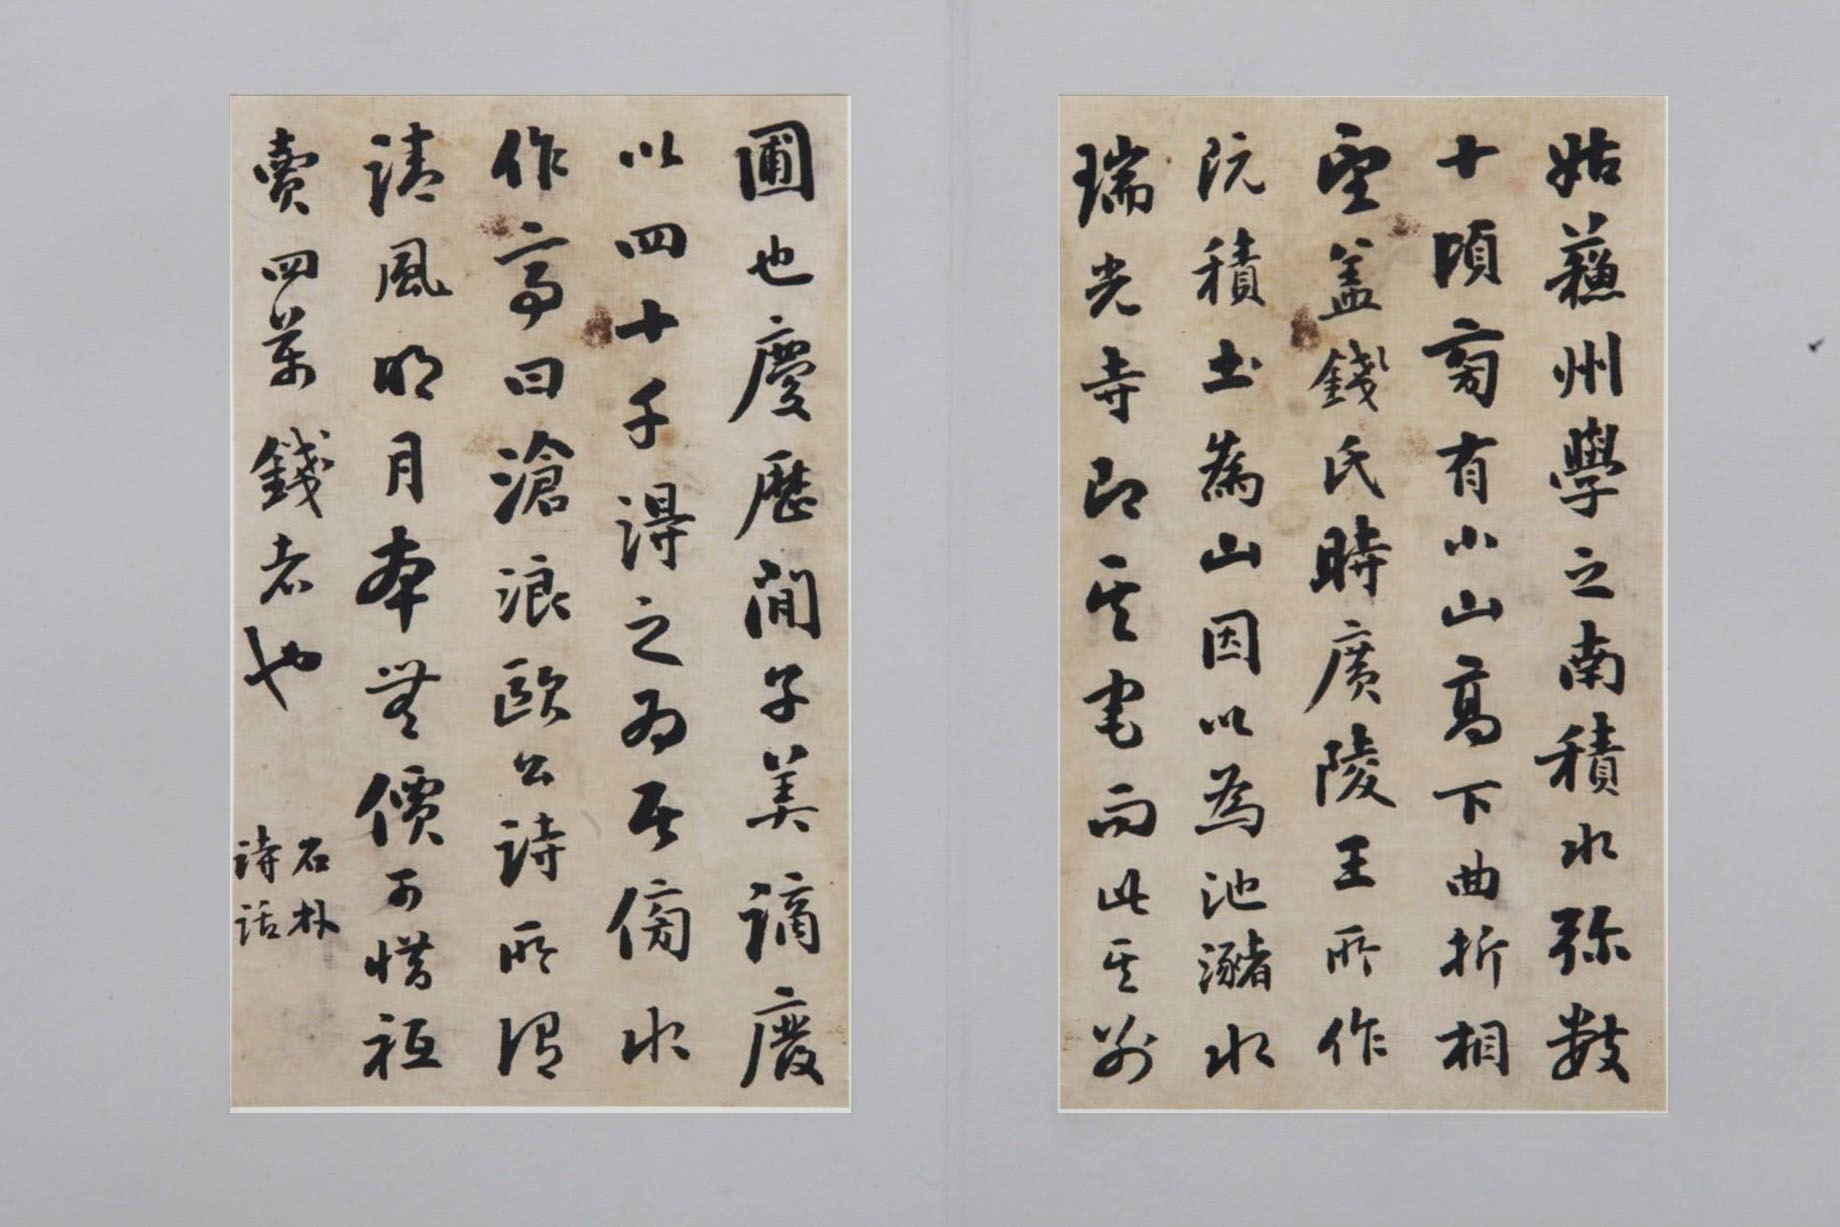 姑蘓州學之南積水弥數
十頃旁有小山高下曲折相
望盖錢氏時廣陵王所作
阬積土為山因以為池瀦水
瑞光寺即其宅而此其別
圃也慶歷間子美謫廢
以四十千得之為居傍水
作亭曰滄浪歐公詩所謂
清風明月本無價可惜祗
賣四萬錢者也
石林
詩話